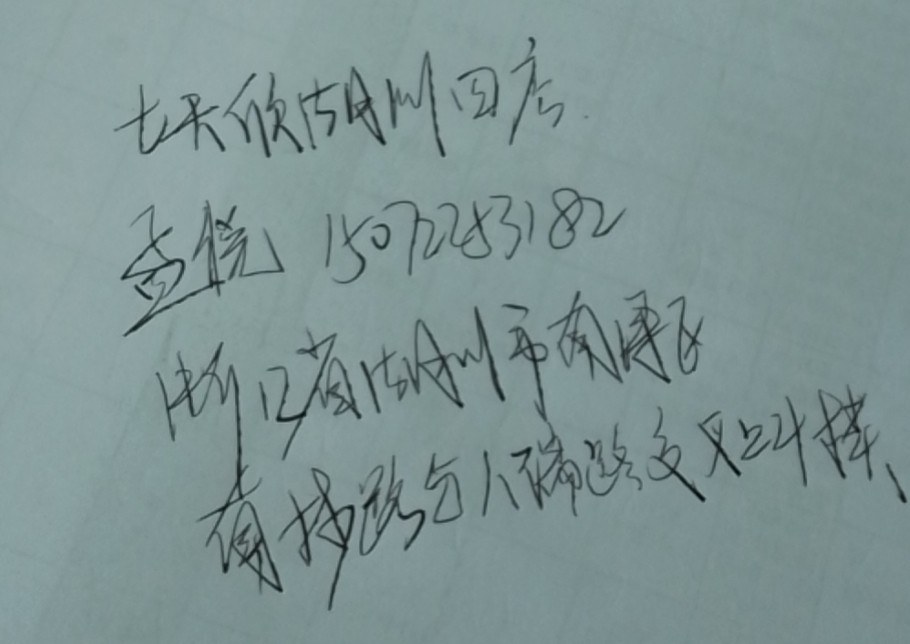 七天欣湖州四店
孟悦 15072253182
浙江省湖州市南浔区
南林路与人瑞路交叉口24楼